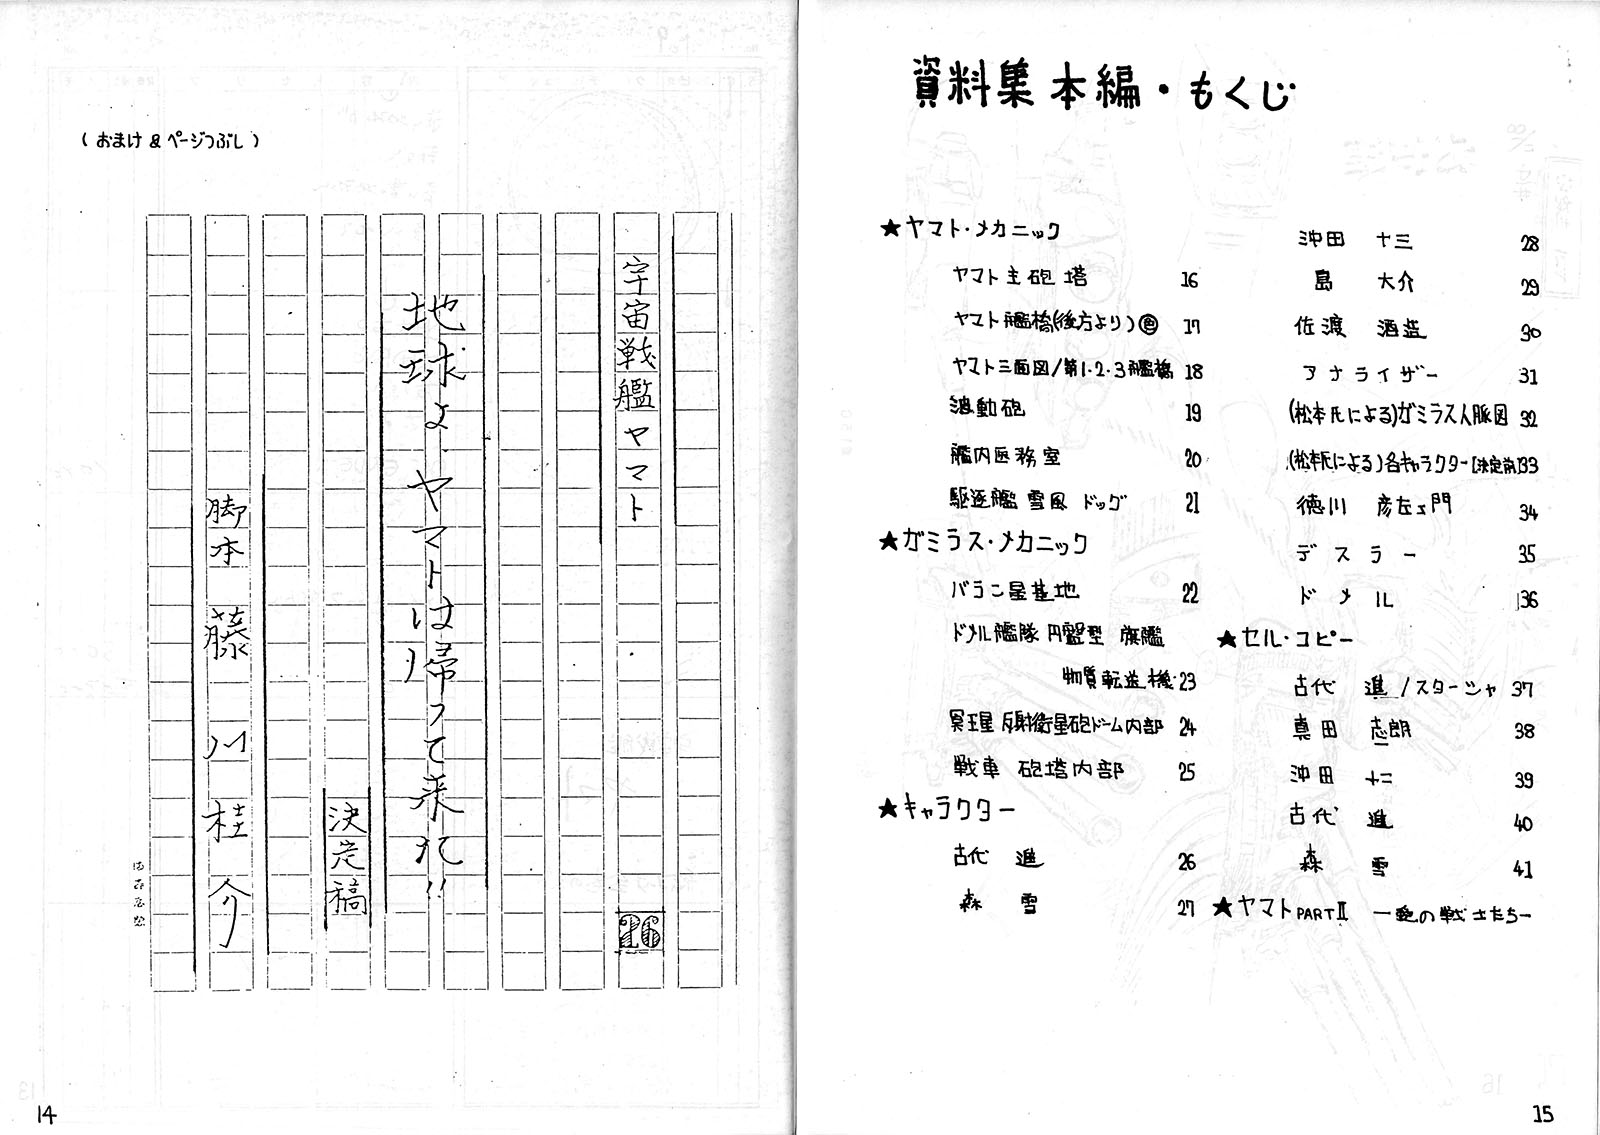 (おまけ & ページつぶし)
宇宙戦艦ヤマト 26
地球よ ヤマトは帰って来た!!
決定稿
脚本 藤川桂介
14
資料集 本編・もくじ
★ヤマト・メカニック
ヤマト主砲塔 16
ヤマト艦橋(後方より) 17
ヤマト三面図/第1・2・3艦橋 18
波動砲 19
艦内医務室 20
駆逐艦 雪風 ドッグ 21
★ガミラス・メカニック
バラン星基地 22
ドメル艦隊 円盤型 旗艦
物質転送機 23
冥王星 反射衛星砲ドーム内部 24
戦車 砲塔内部 25
★キャラクター
古代 進 26
森 雪 27
沖田 十三 28
島 大介 29
佐渡 酒造 30
アナライザー 31
(松本氏による)ガミラス人脈図 32
(松本氏による)各キャラクター[決定前] 33
徳川 彦左ェ門 34
デスラー 35
ドメル 36
★セル・コピー
古代 進/スターシャ 37
真田 志朗 38
沖田 十三 39
古代 進 40
森 雪 41
★ヤマトPARTⅡ ー愛の戦士たちー
15